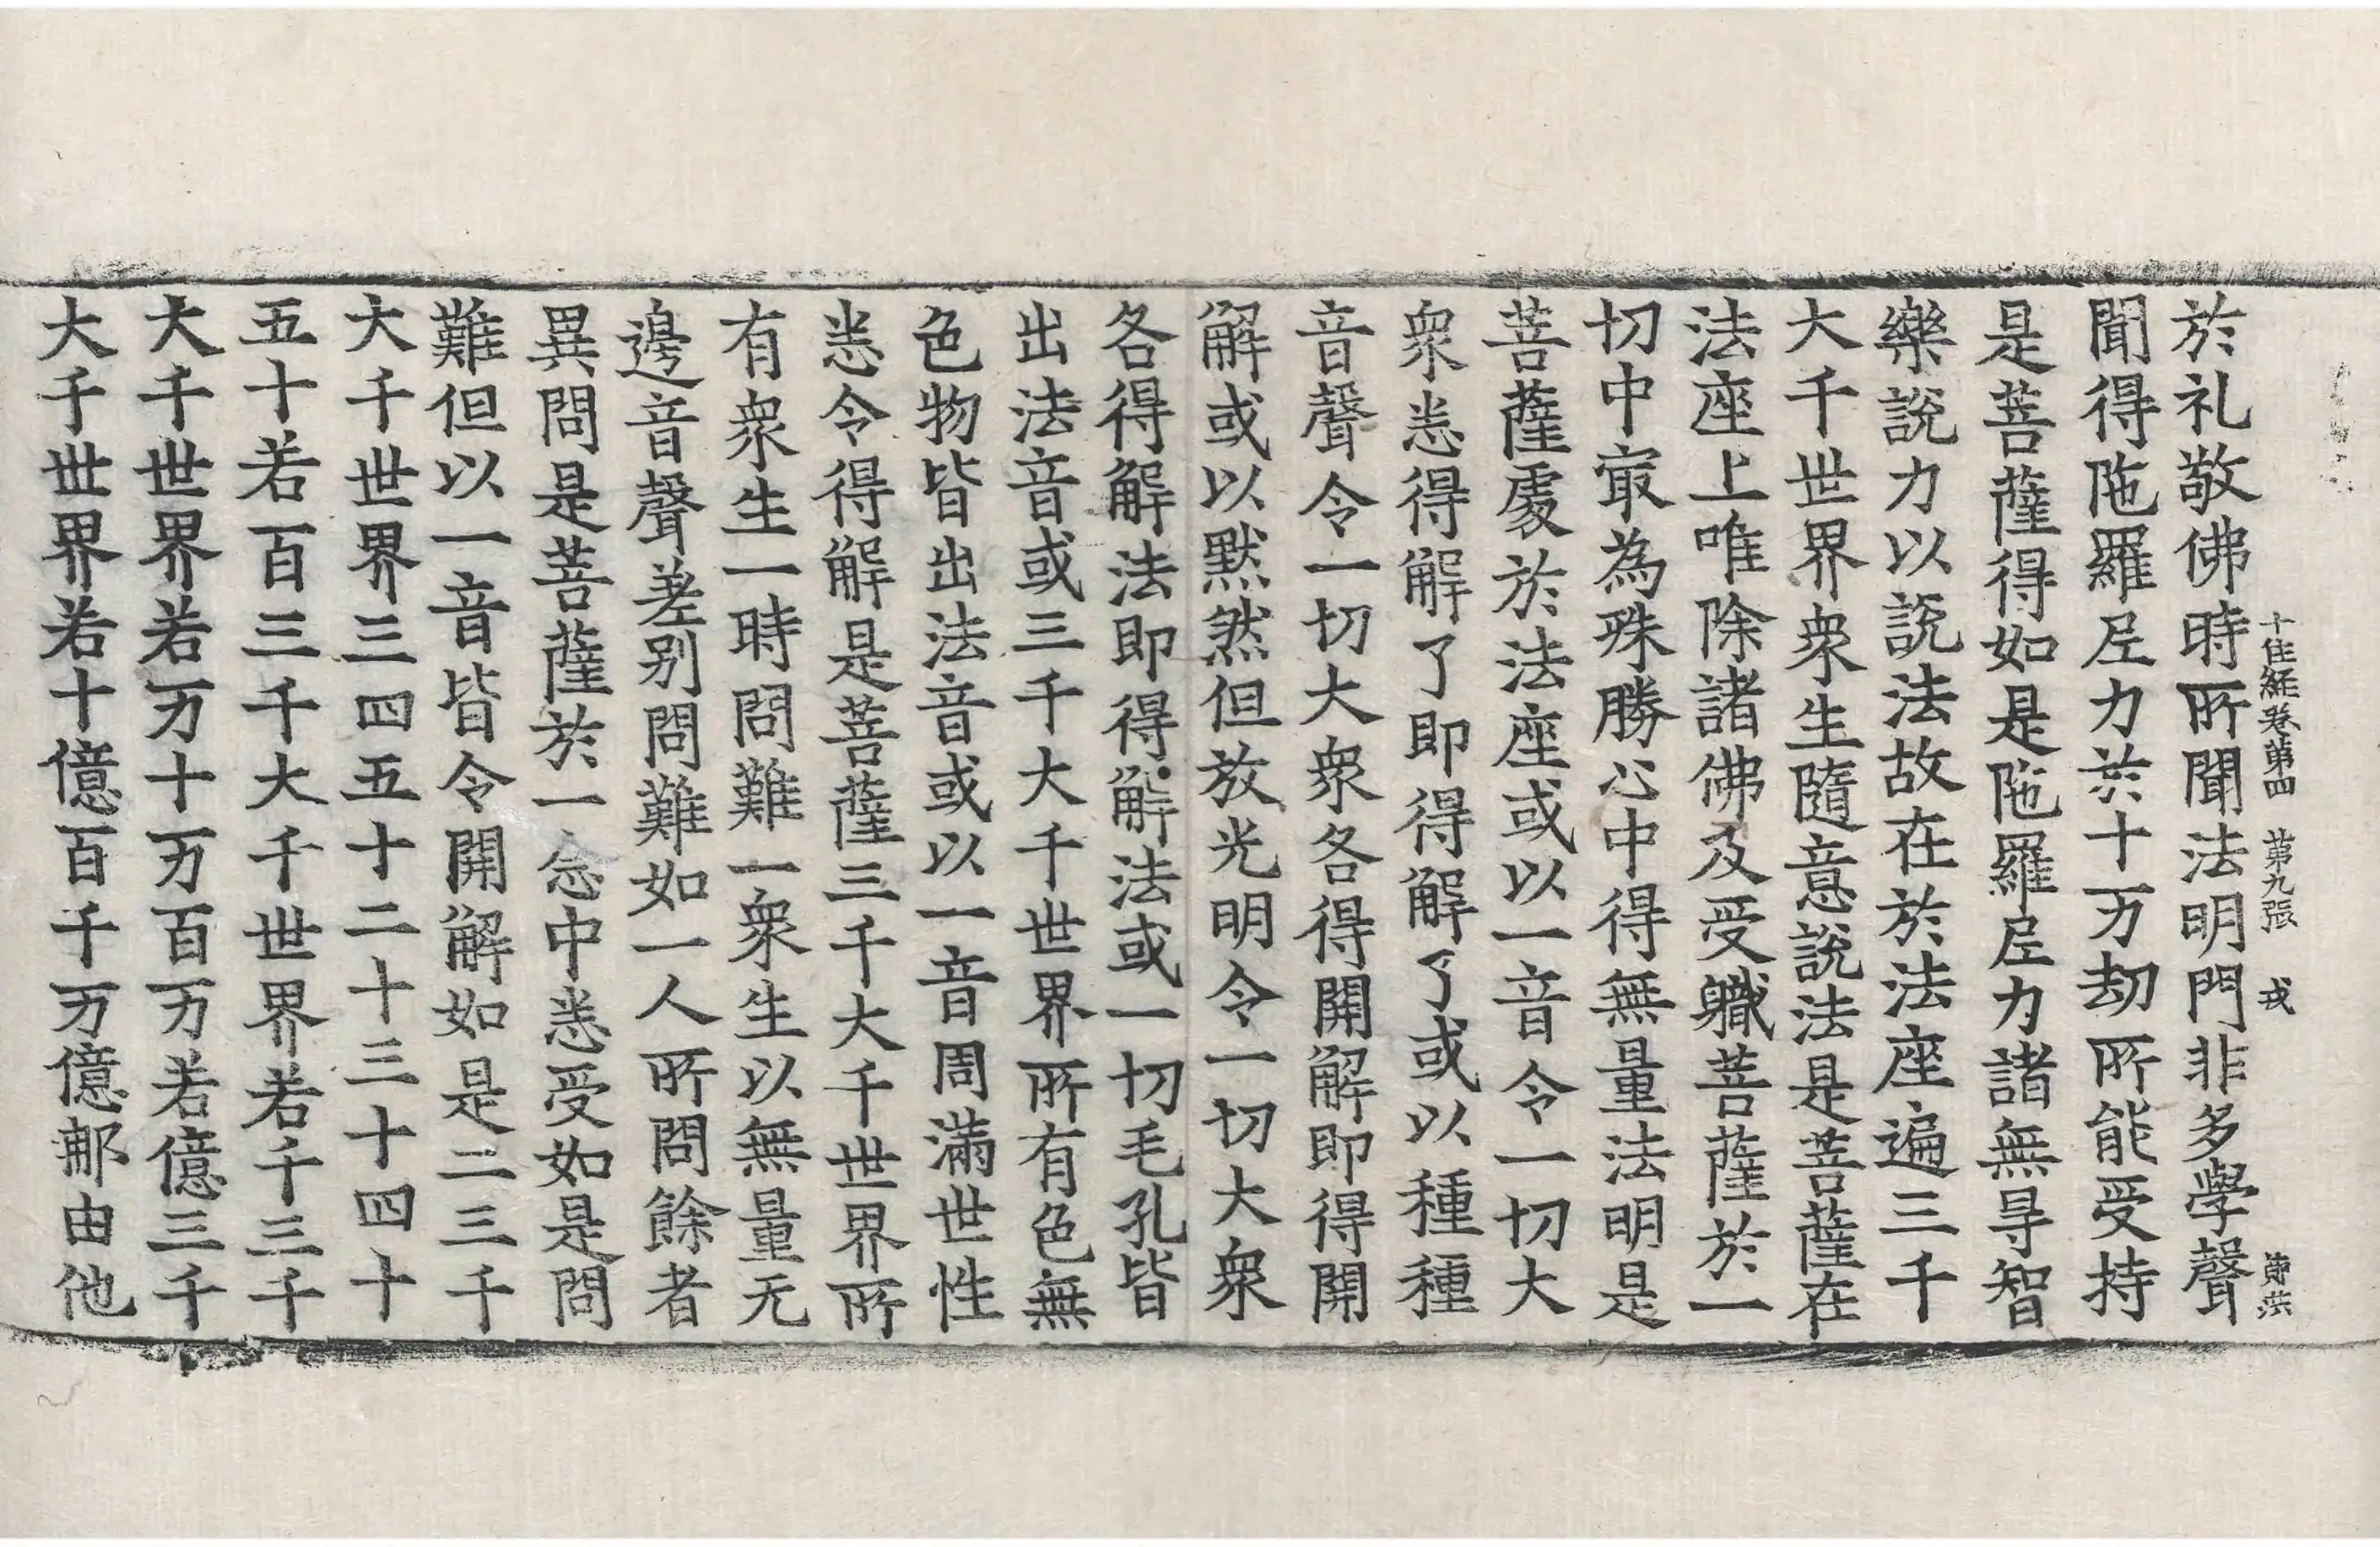 十住經卷第四　第九張　戎
於礼敬佛時所聞法明門非多學聲
聞得陁羅尼力於十万劫所能受持
是菩薩得如是陁羅尼力諸無㝵智
樂說力以說法故在於法座遍三千
大千世界衆生隨意說法是菩薩在
法座上唯除諸佛及受職菩薩於一
切中㝡為殊勝心中得無量法明是
菩薩處於法座或以一音令一切大
衆悉得解了即得解了或以種種
音聲令一切大衆各得開解即得開
解或以默然但放光明令一切大衆
各得解法即得解法或一切毛孔皆
出法音或三千大千世界所有色無
色物皆出法音或以一音周滿世性
悉令得解是菩薩三千大千世界所
有衆生一時問難一衆生以無量无
邊音聲差别問難如一人所問餘者
異問是菩薩於一念中悉受如是問
難但以一音皆令開解如是二三千
大千世界三四五十二十三十四十
五十若百三千大千世界若千三千
大千世界若万十万百万若億三千
大千世界若十億百千万億郍由他